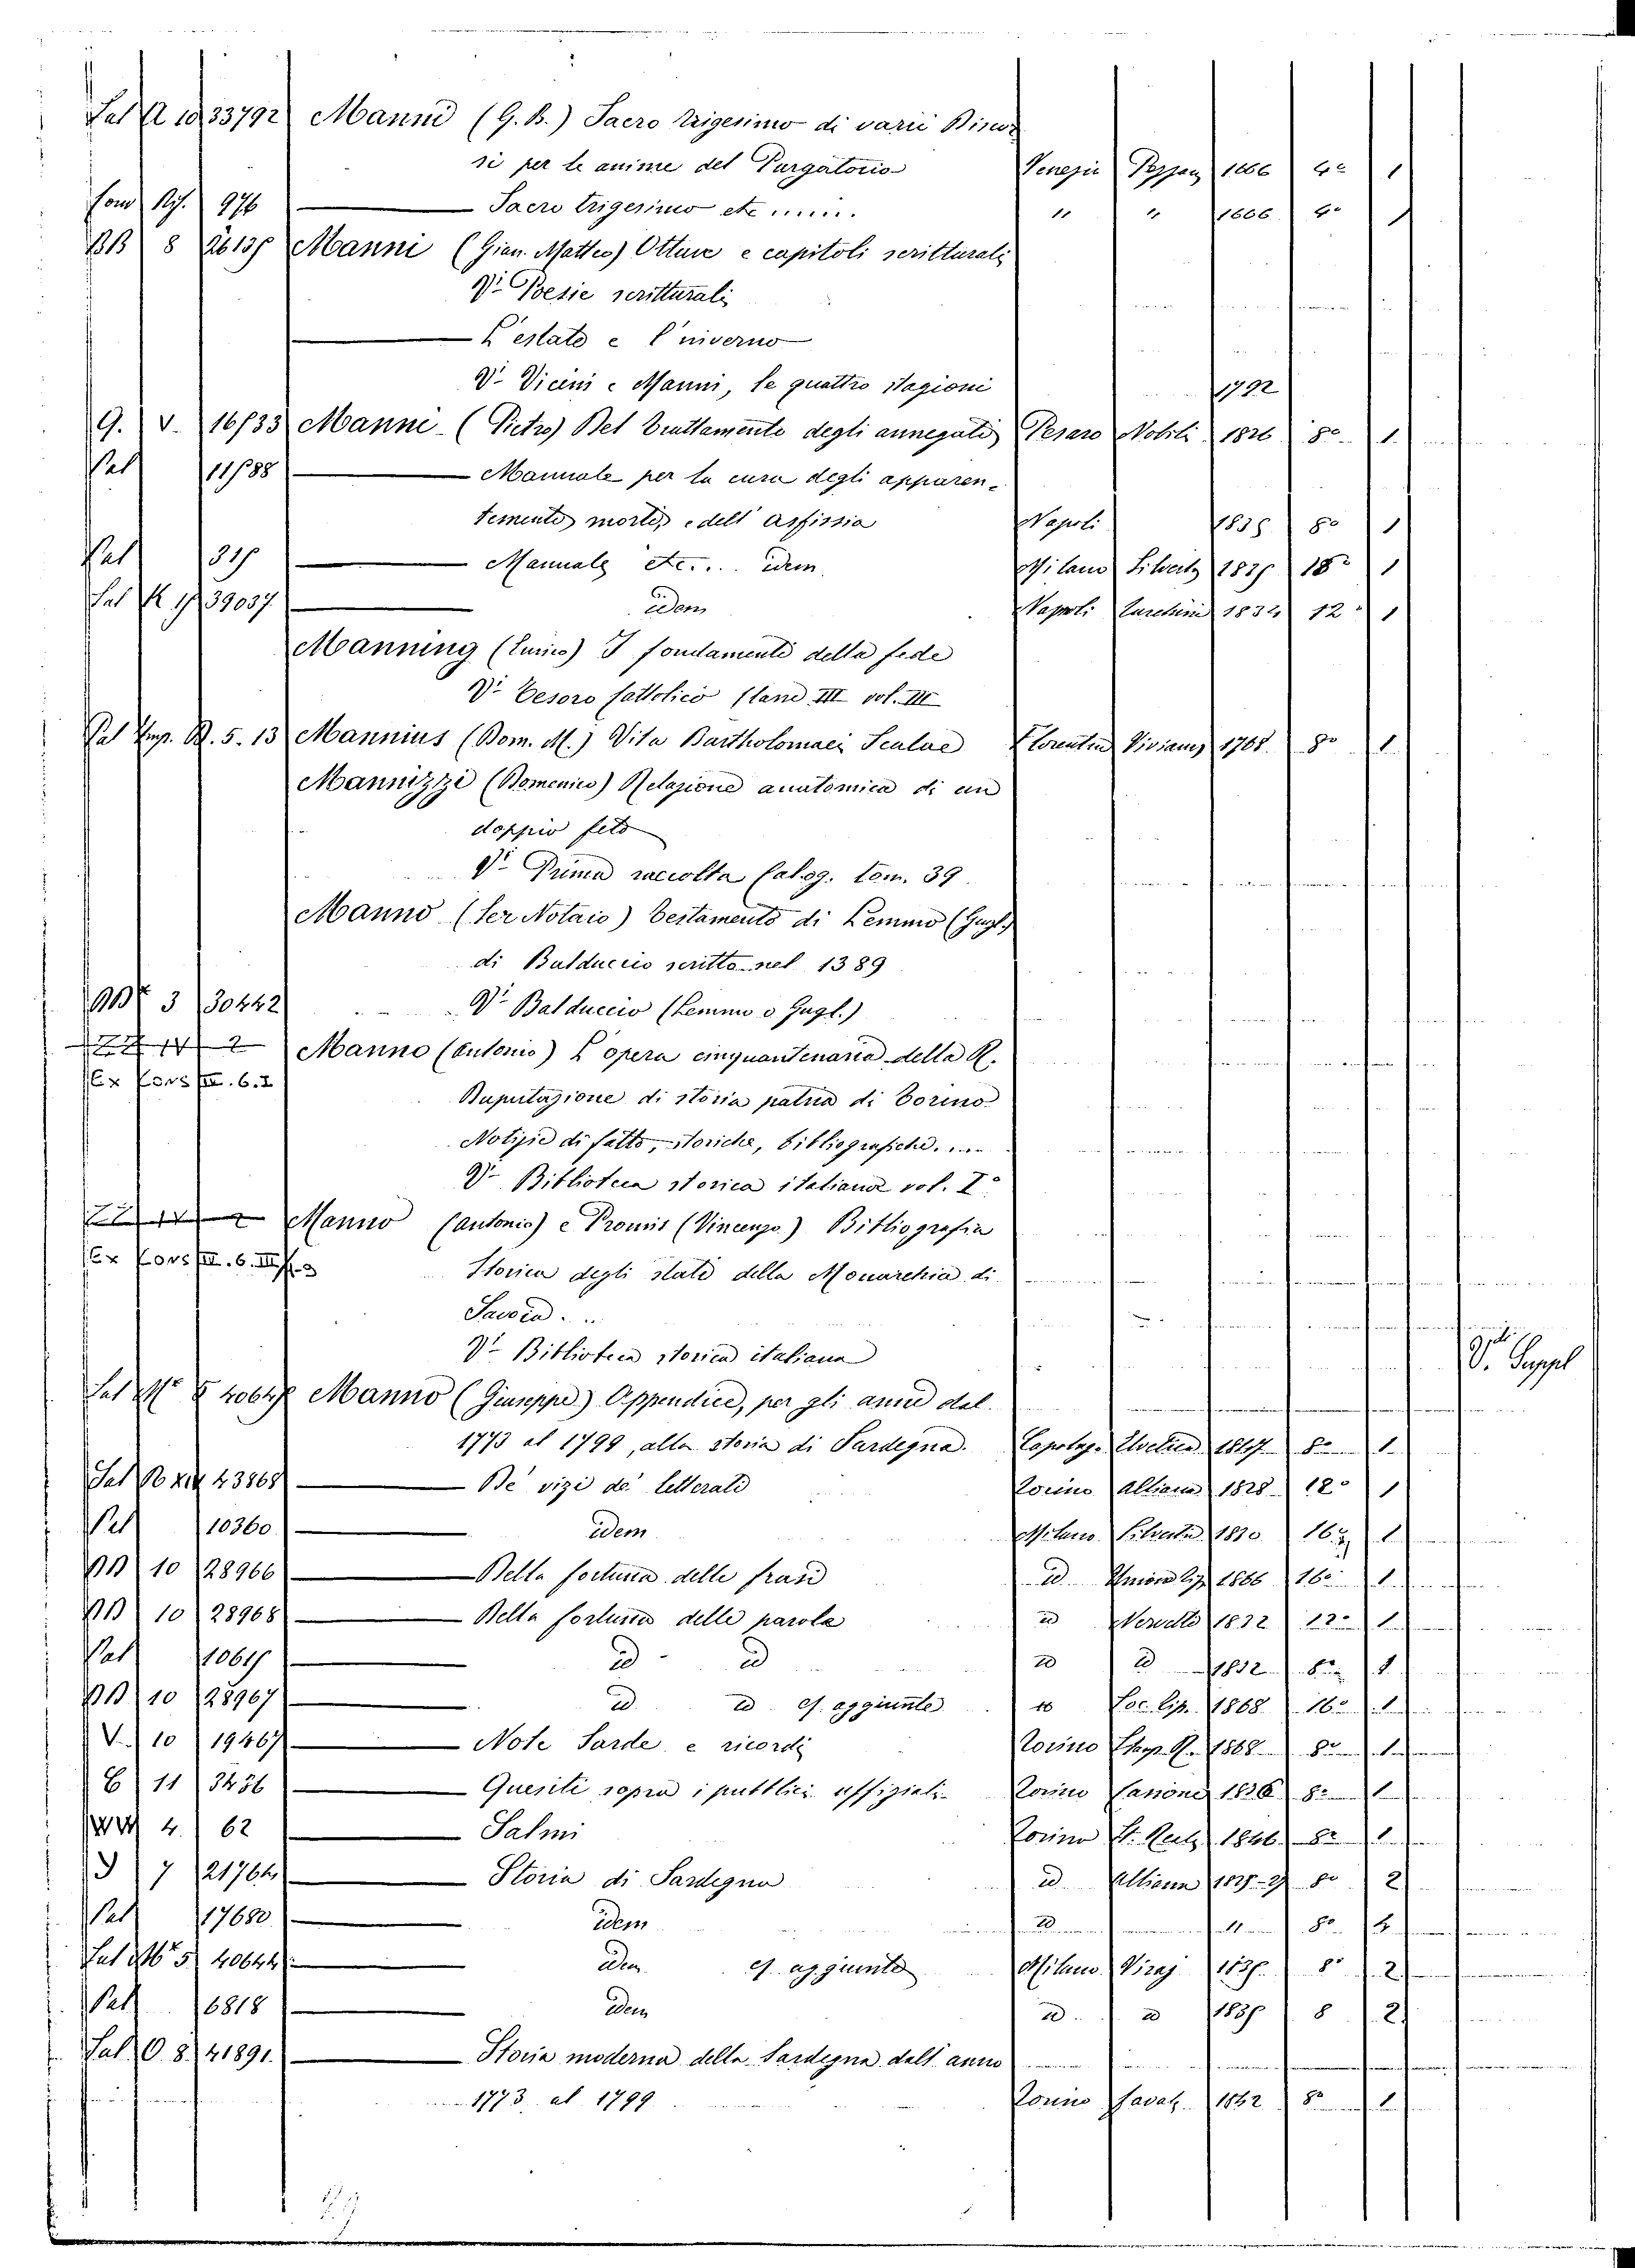 Sal A 10 33792 Manni (G. B.) Sacro trigesimo di varii Discor
si per le anime del Purgatorio Venezia Pezzan 1666 4° 1
Com Rif. 976 Sacro trigesimo etc ...... " " 1666 4° 1
BB 8 Manni (Gian. Matteo) Ottave e capitoli scritturali
Vi Poesie scritturali
L'estate e l'niverno
Vi Vicini e Manni, le quattro stagioni 1792
G. V. 16533 Manni (Pietro) Del Trattamento degli annegati Pesaro Nobili 1826 8° 1
Pal 11588 Manuale per la cura degli apparen-
temente morti, e dell' asfissia Napoli 1835 8° 1
Pal Manuale etc.... idem Milano Silvestri 18° 1
Sal 39037 idem Napoli 1834 12° 1
Manning (Enrico) I fondamenti della fede
Vi Tesoro Cattolico Clanc III vol. III
Pal Imp. R. 5. 13 Mannius (Dom. M.) Vita Bartholomaei Scalae Florentiae Vivianus 1768 8° 1
Mannizzi (Domenico) Relazione anatomica di un
doppio feto
Vi Prima raccolta Calog. tom. 39
Manno (Ser Notaio) Testamento di Lemmo (Gugl.)
di Balduccio scritto nel 1389
3 30442 Vi Balduccio (Lemmo o Gugl.)
Manno (Antonio) L'opera cinquantenaria della R.
Ex Cons III. 6. I
Deputazione di storia patria di Torino
Notizie di fatto, storiche, bibliografiche. ...
Vi Biblioteca storica italiana vol. I°
Manno (Antonio) e Promis (Vincenzo) Bibliografia
Ex Cons III. 6. III
Storica degli stati della Monarchia di
Savoia. ..
Vi Biblioteca storica italiana
Vi Suppl
Sal Manno (Giuseppe) Appendice, per gli anni dal
1773 al 1799, alla storia di Sardegna. Capolago Elvetica 1847 8° 1
Sal 43868 De' vizi de' letterati Torino Alliana 1828 12° 1
Pal 10360 idem Milano Silvestri 1830 16° 1
BB 10 28966 Della fortuna delle frasi id Unione tip 1866 16° 1
BB 10 28968 Della fortuna delle parole id Nervetti 1832 12° 1
Pal id id id id 1832 8° 1
BB 10 28967 id id ef. aggiunte id Soc. tip. 1868 16° 1
V. 10 19467 Note Sarde e ricordi Torino Stamp. R. 1868 8° 1
E 11 3456 Quesiti sopra i pubblici uffiziali Torino Canone 1836 8° 1
WW 4. 62 Salmi Torino St. Reale 1846 8° 1
J 7 21764 Storia di Sardegna id Alliana 1825-27 8° 2
Pal 17680 idem id " 8°
Sal 5 40644 idem ef. aggiunte Milano Viraj 1835 8° 2
Pal 6818 idem id id 1835 8 2
Sal. O. 8. 41891 Storia moderna della Sardegna dall' anno
1773 al 1799 Torino Favale 1842 8° 1